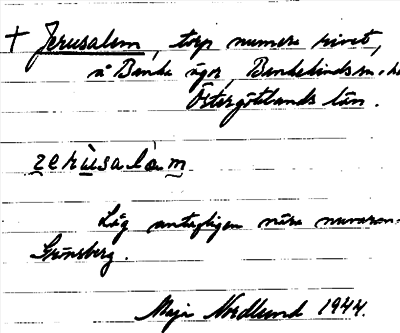 † Jerusalem, torp numera rivet,
å Banke ägor, Bankekinds sn. o. hd
Östergötlands län.
zerùsalàm
Låg antagligen nära nuvaran-
Grönsberg.
Maja Nordlund 1944.